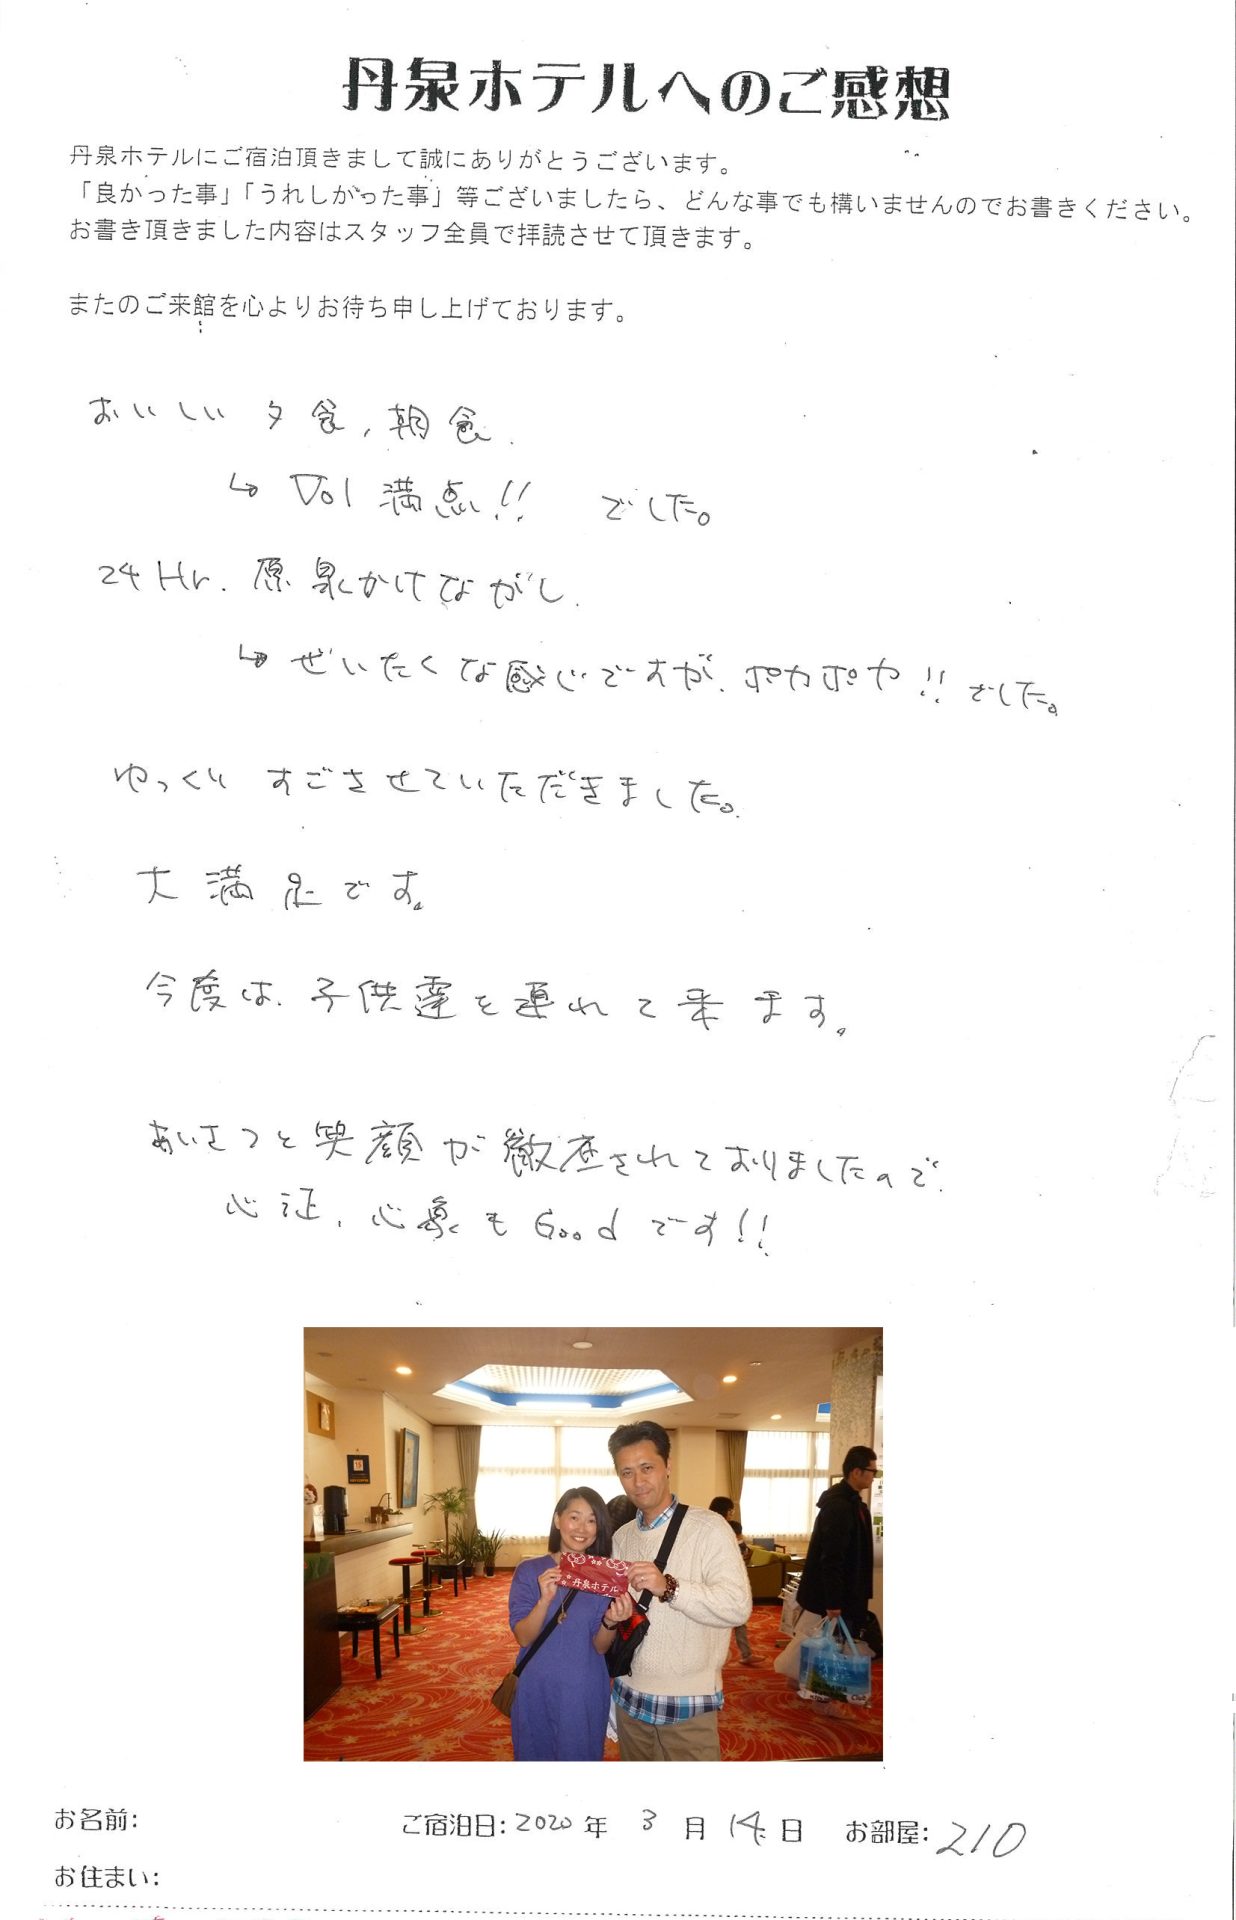 丹泉ホテルへのご感想
丹泉ホテルにご宿泊頂きまして誠にありがとうございます。
「良かった事」「うれしかった事」等ございましたら、どんな事でも構いませんのでお書きください。
お書き頂きました内容はスタッフ全員で拝読させて頂きます。
またのご来館を心よりお待ち申し上げております。
おいしい 夕食, 朝食.
↳ Vol 満点!! でした。
24Hr. 原泉かけながし.
↳ ぜいたくな感じですが、ポカポカ!! でした。
ゆっくり すごさせていただきました。
大満足です。
今度は、子供達を連れて来ます。
あいさつと笑顔が徹底されておりましたので、
心証、心象もGoodです!!
丹泉ホテル
お名前:
ご宿泊日:2020年 3月 14日 お部屋:210
お住まい: